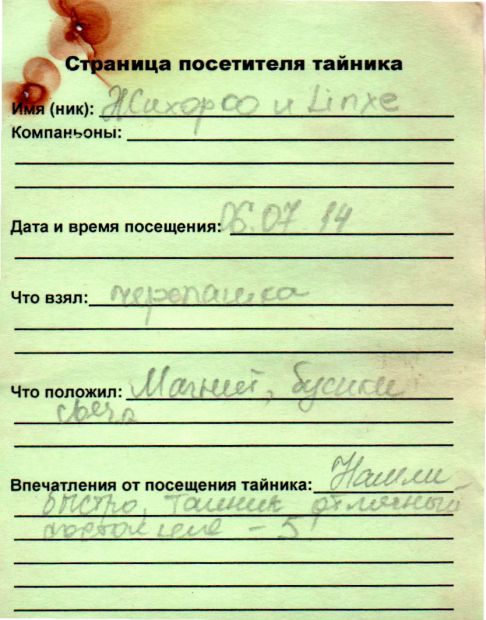 Страница посетителя тайника
Имя (ник): Жихорсо и Linxe
Компаньоны:
Дата и время посещения: 06.07 14
Что взял: черепашка
Что положил: Магнит, бусики
свеча
Впечатления от посещения тайника: Нашли
быстро, тайник отличный
- 5